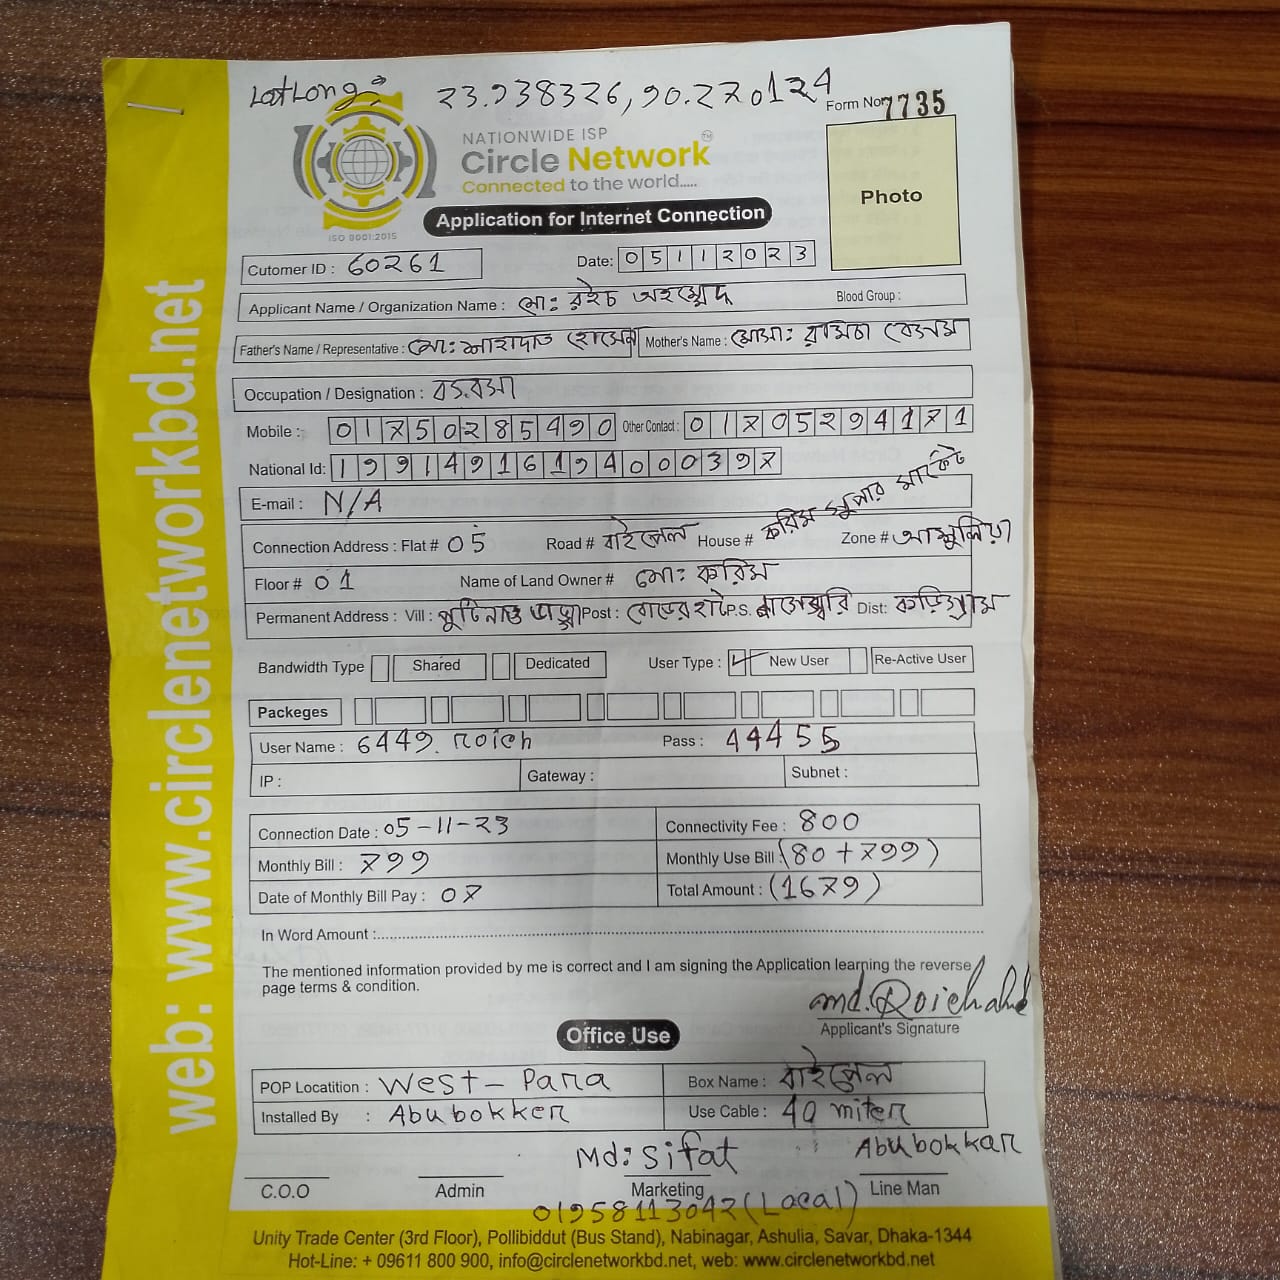 LatLong: 23.938326, 90.270124
Form No 7735
NATIONWIDE ISP
Circle Network TM
Connected to the world.....
ISO 9001:2015
Application for Internet Connection
Photo
Cutomer ID : 60261 Date: 05112023
Applicant Name / Organization Name : মোঃ রইচ আহম্মেদ Blood Group :
Father's Name / Representative : মোঃ শাহাদাত হোসেন Mother's Name : মোসাঃ রামিচা বেগম
Occupation / Designation : ব্যবসা
Mobile : 01750285490 Other Contact : 01705294171
National Id: 19914916194000397
E-mail : N/A
Connection Address : Flat # 05 Road # বাইপেল House # করিম সুপার মার্কেট Zone # আশুলিয়া
Floor # 01 Name of Land Owner # মোঃ করিম
Permanent Address : Vill : Post : P.S. Dist: কুড়িগ্রাম
Bandwidth Type Shared Dedicated User Type : New User Re-Active User
Packeges
User Name : 6449.roich Pass : 44455
IP : Gateway : Subnet :
Connection Date : 05-11-23 Connectivity Fee : 800
Monthly Bill : 799 Monthly Use Bill : (80+799)
Date of Monthly Bill Pay : 07 Total Amount : (1679)
In Word Amount :
The mentioned information provided by me is correct and I am signing the Application learning the reverse
page terms & condition.
md. Roich ahd
Applicant's Signature
Office Use
POP Locatition : West-Para Box Name : বাইপেল
Installed By : Abubokker Use Cable : 40 miter
Md: Sifat Abubokkar
C.O.O Admin Marketing Line Man
01958113042 (Local)
Unity Trade Center (3rd Floor), Pollibiddut (Bus Stand), Nabinagar, Ashulia, Savar, Dhaka-1344
Hot-Line: + 09611 800 900, info@circlenetworkbd.net, web: www.circlenetworkbd.net
web: www.circlenetworkbd.net